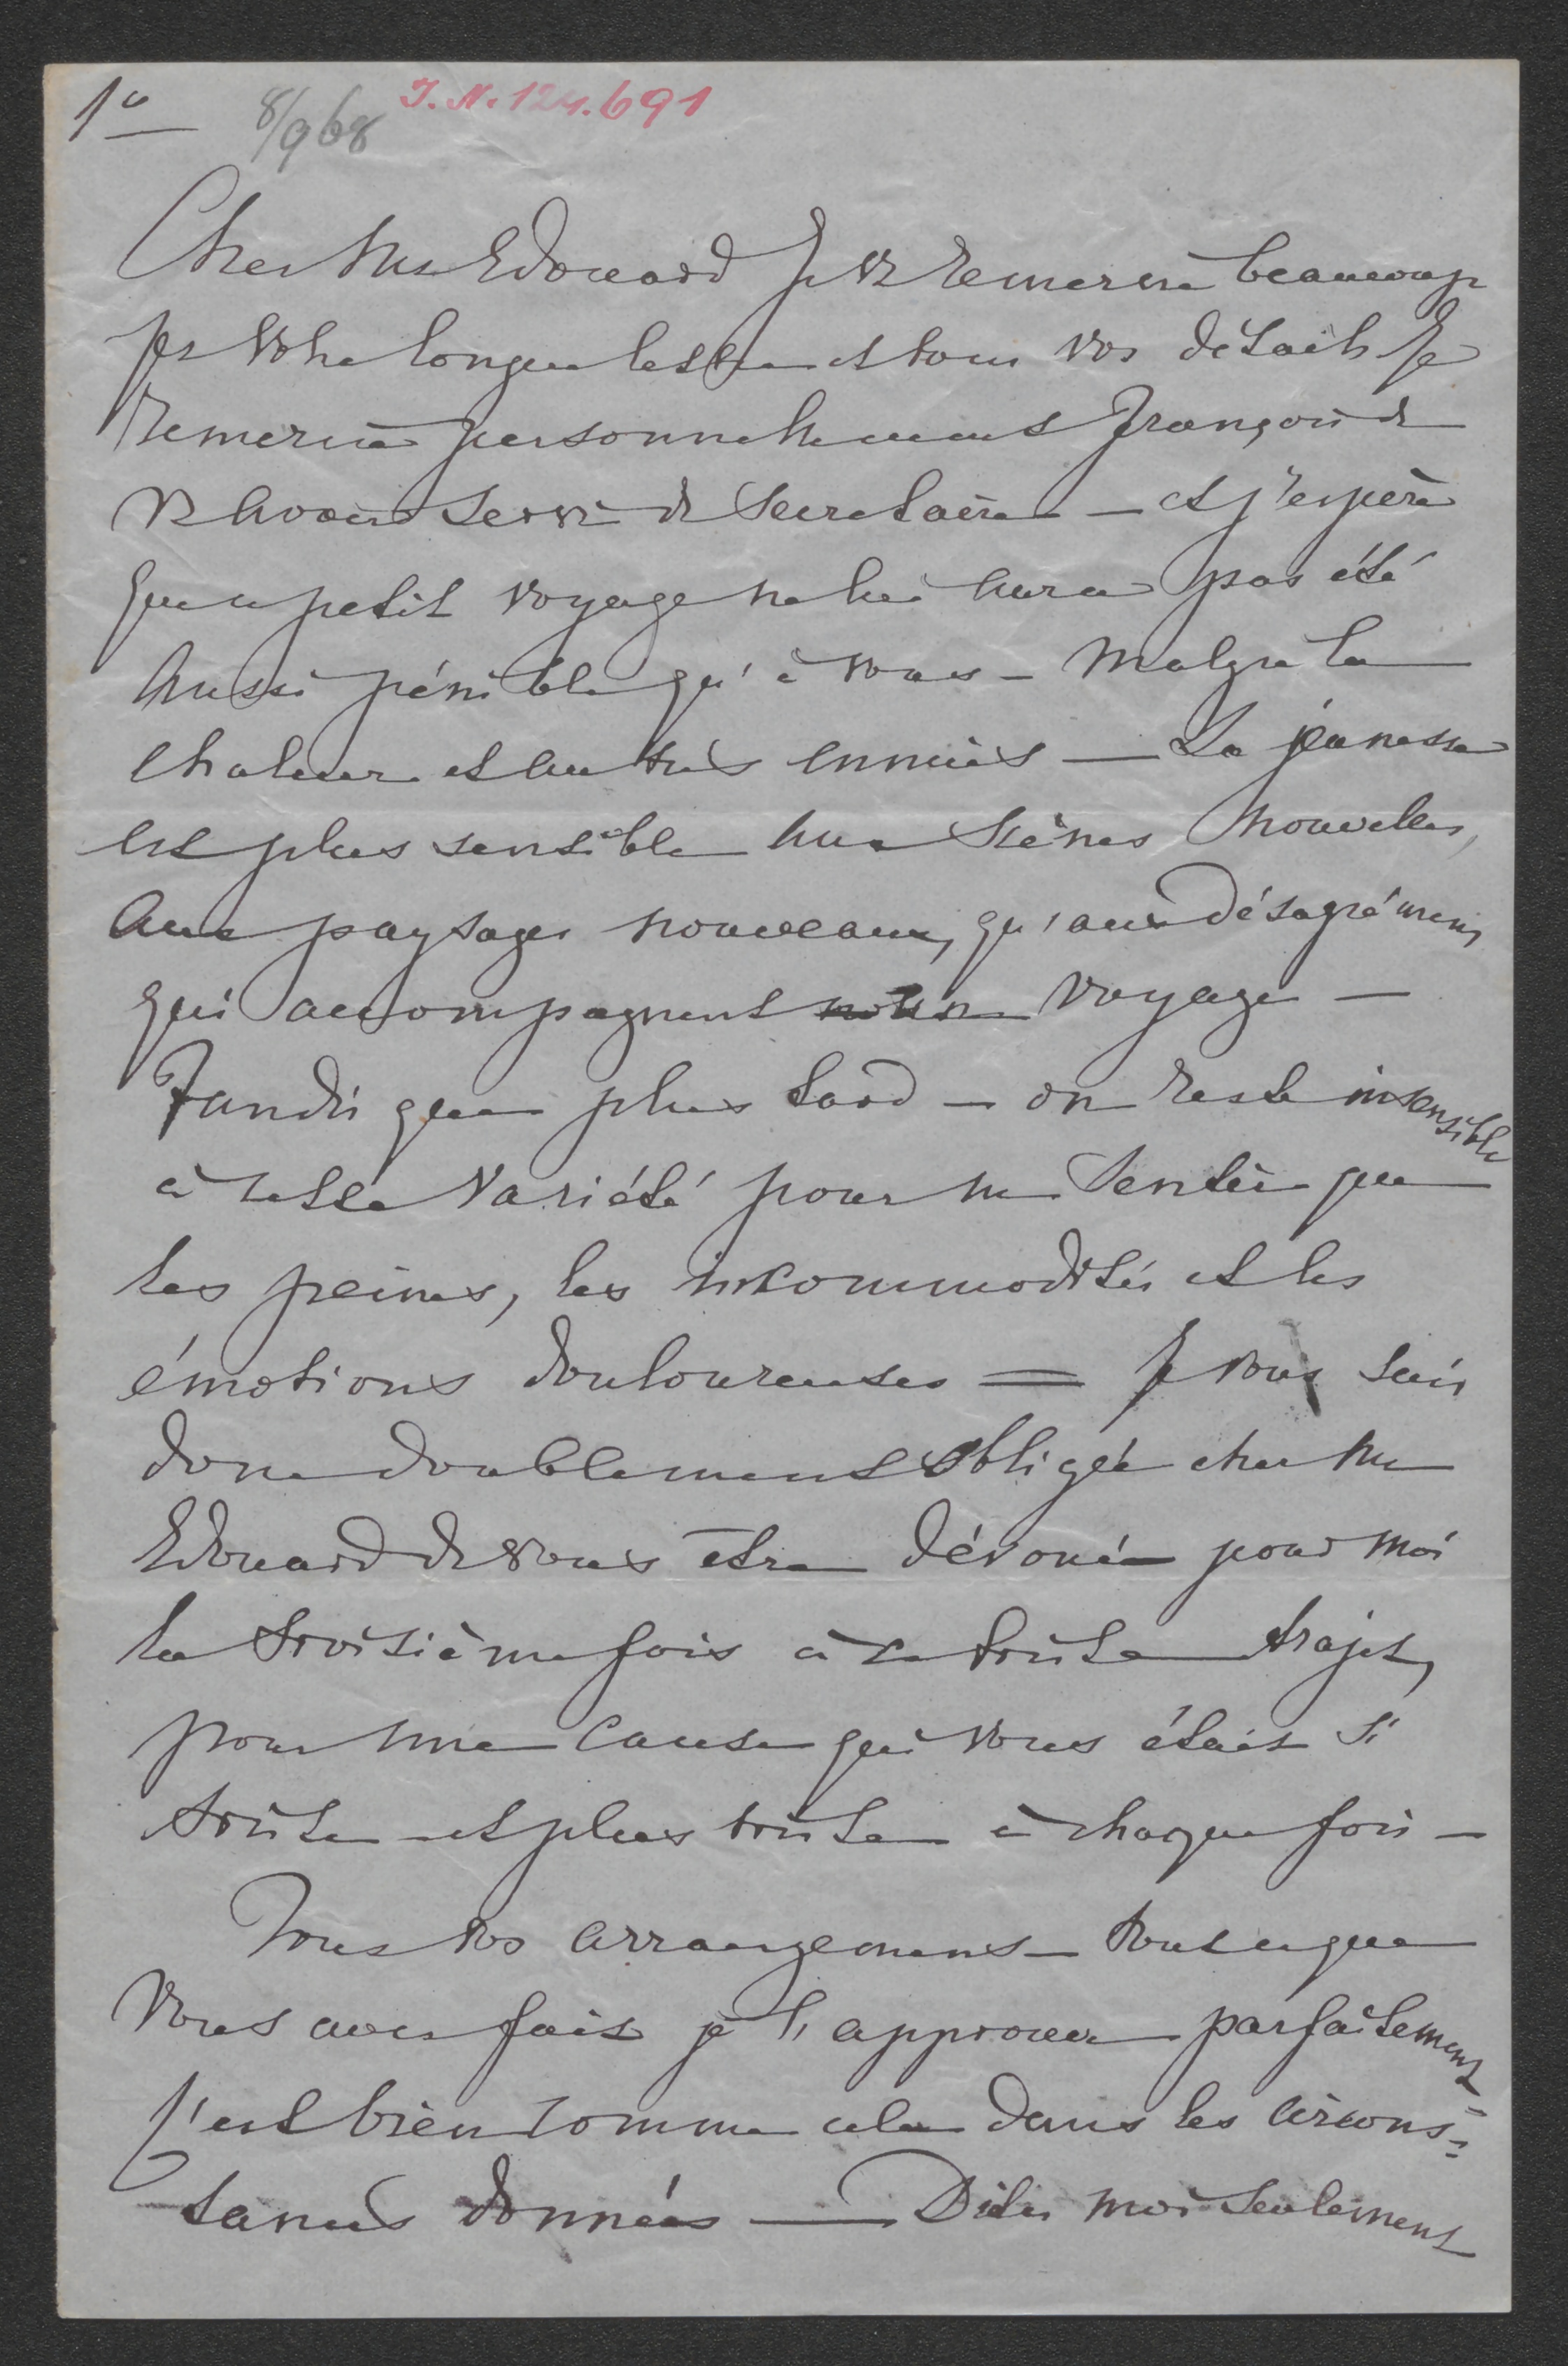 1º 8/968 I.N. 124.691
Cher Mr Edouard je vs remercie beaucoup
pr votre longue lettre et tous vos détails je
remercie personnellement François de
vs avoir servi de secretaire — et j'espère
que ce petit voyage ne lui aura pas été
aussi pénible qu'à vous — malgré la
chaleur et autres ennuis — La jeunesse
est plus sensible aux scènes nouvelles,
aux paysages nouveaux, qu'aux désagrémens
qui accompagnent voyage —
Tandis que plus tard — on reste insensible
à cette variété pour ne sentir que
les peines, les incommodités et les
émotions douloureuses = je vous suis
donc doublement obligée cher Mr
Edouard de vous être dévoué pour moi
la troisième fois à ce triste trajet,
pour une cause qui vous était si
triste et plus triste à chaque fois —
Tous vos arrangemens — tout ce que
vous avez fait je l'approuve parfaitement =
c'est bien comme cela dans les circons=
tances données — Dites moi seulement